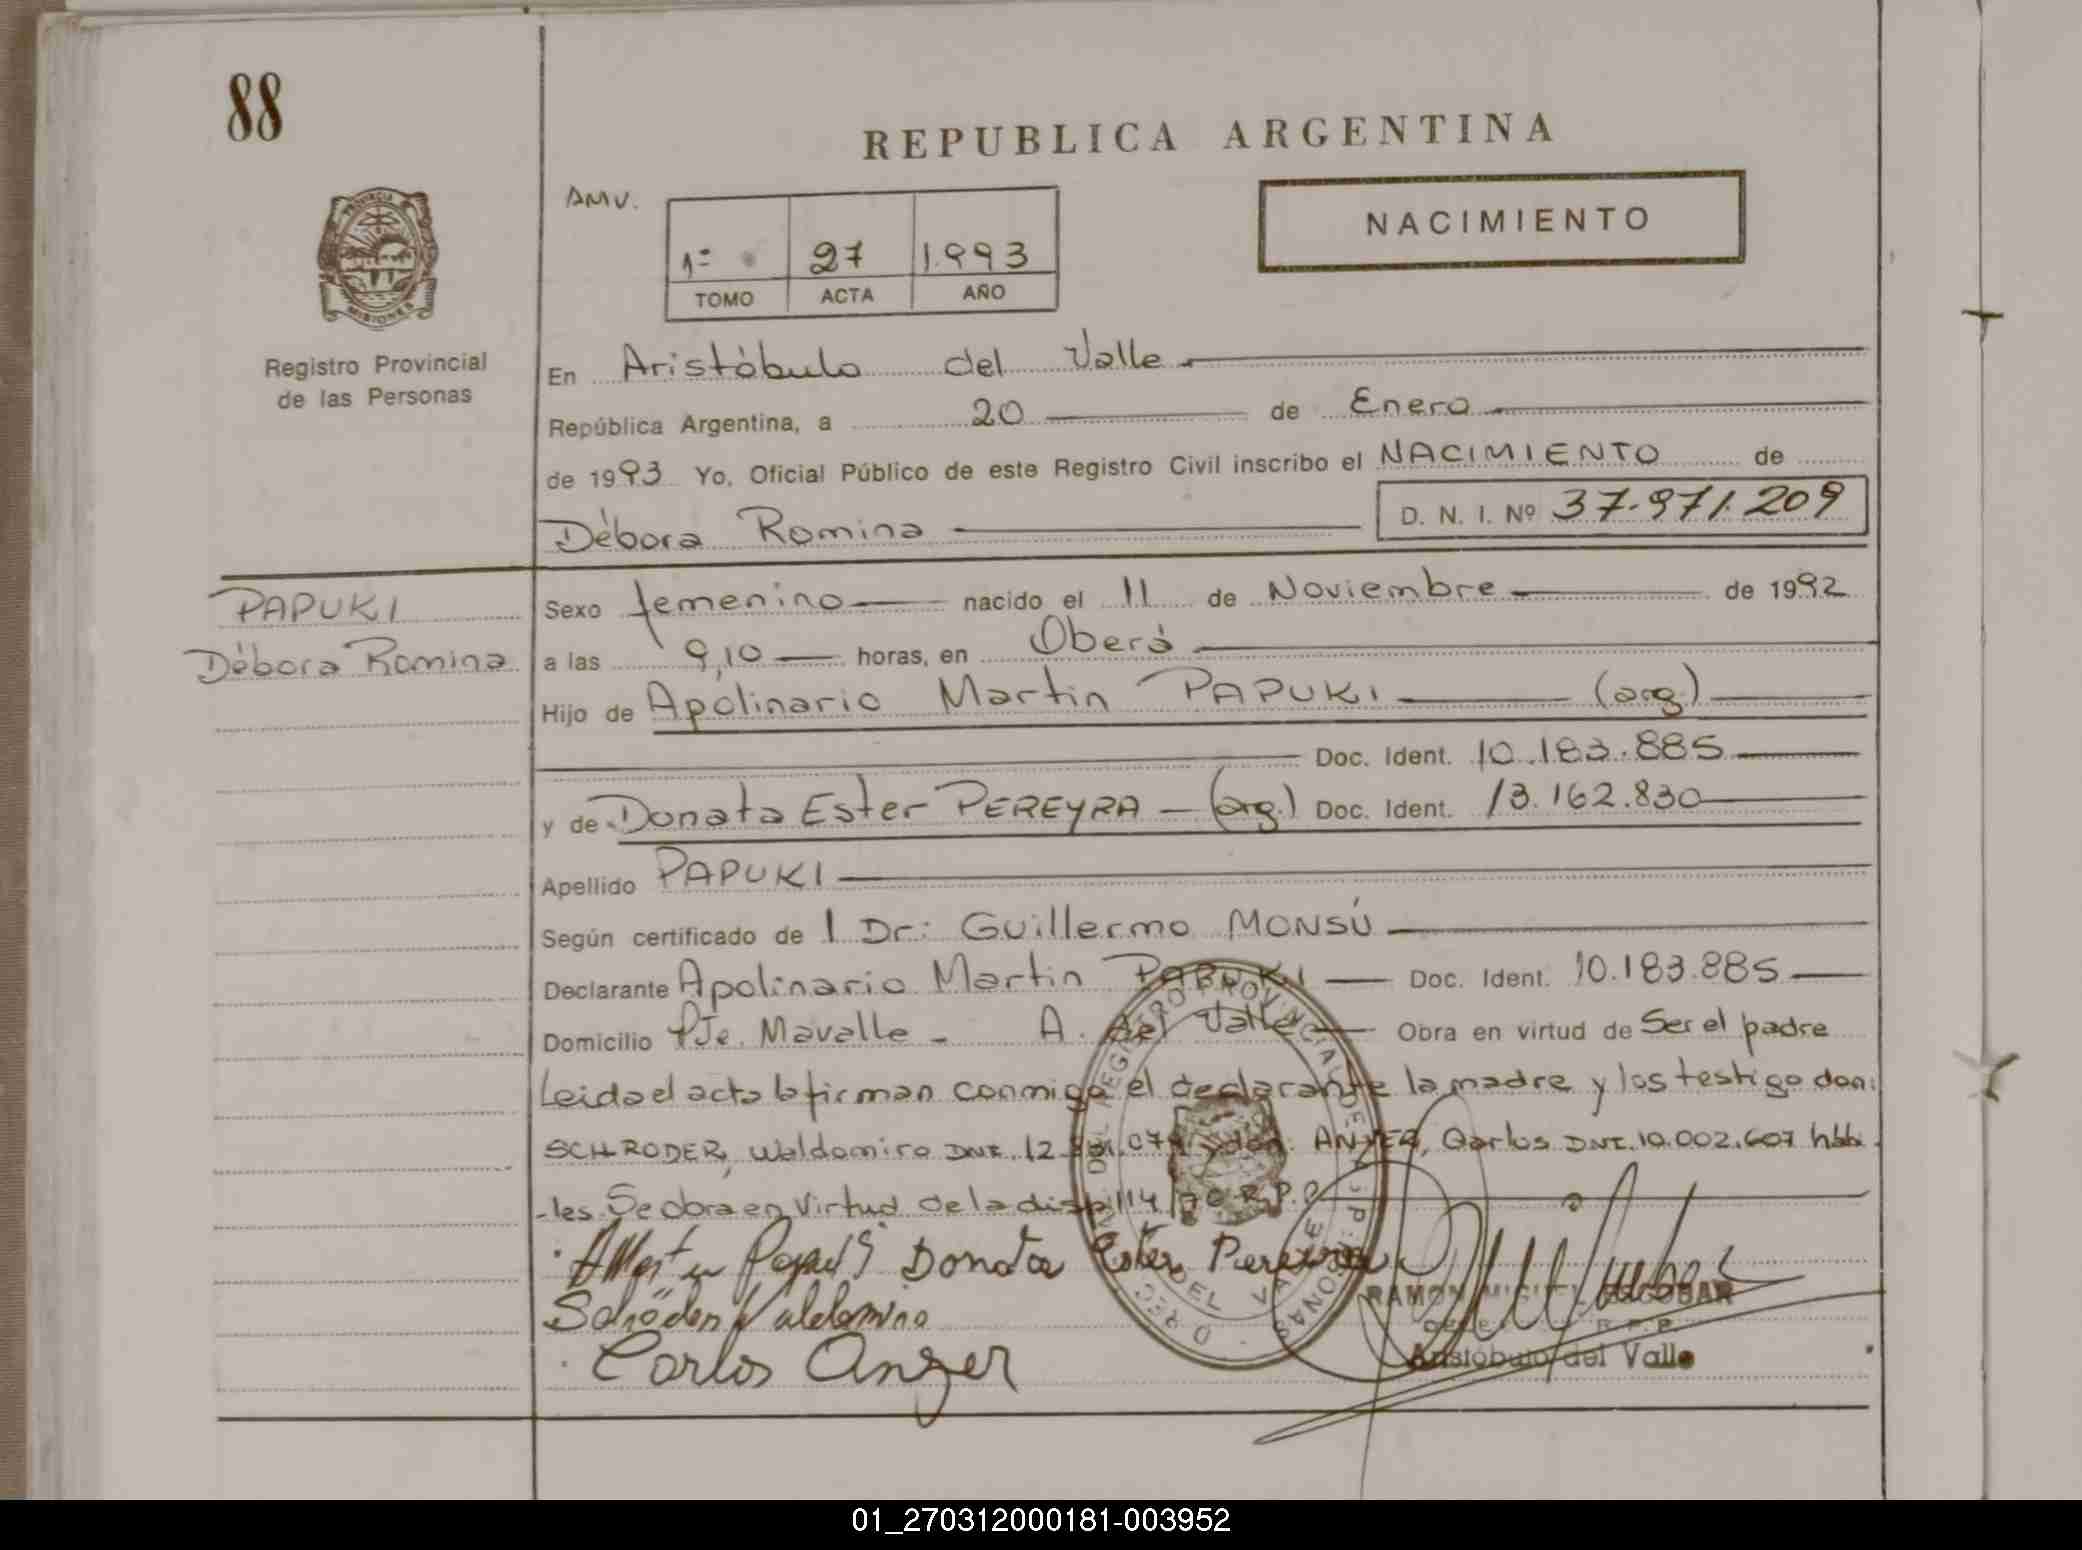 88
REPUBLICA ARGENTINA
AMV.
1º 27 1.993
TOMO ACTA AÑO
NACIMIENTO
PROVINCIA
MISIONES
Registro Provincial
de las Personas
En Aristóbulo del Valle
República Argentina, a 20 de Enero
de 1993 Yo, Oficial Público de este Registro Civil inscribo el NACIMIENTO de
Débora Romina D. N. I. Nº 37.971.209
PAPUKI
Débora Romina
Sexo femenino nacido el 11 de Noviembre de 1992
a las 9,10 horas, en Oberá
Hijo de Apolinario Martin PAPUKI (arg.)
Doc. Ident. 10.183.885
y de Donata Ester PEREYRA (arg.) Doc. Ident. 13.162.830
Apellido PAPUKI
Según certificado de 1 Dr: Guillermo MONSÚ
Declarante Apolinario Martin PAPUKI Doc. Ident. 10.183.885
Domicilio Pje. Mavalle - A. del Valle Obra en virtud de Ser el padre
Leida el acta la firman conmigo el declarante la madre y los testigo don:
SCHRODER, Waldomiro DNI. 12. don: ANGER, Carlos DNI. 10.002.607 hábi
-les. Se obra en virtud de la disp. 114/90 R.P.P.
Donata Ester Pereyra
Schöder Valdomiro
Carlos Anger
RAMON MIGUEL ESCOBAR
R.P.P.
Aristóbulo del Valle
01_270312000181-003952